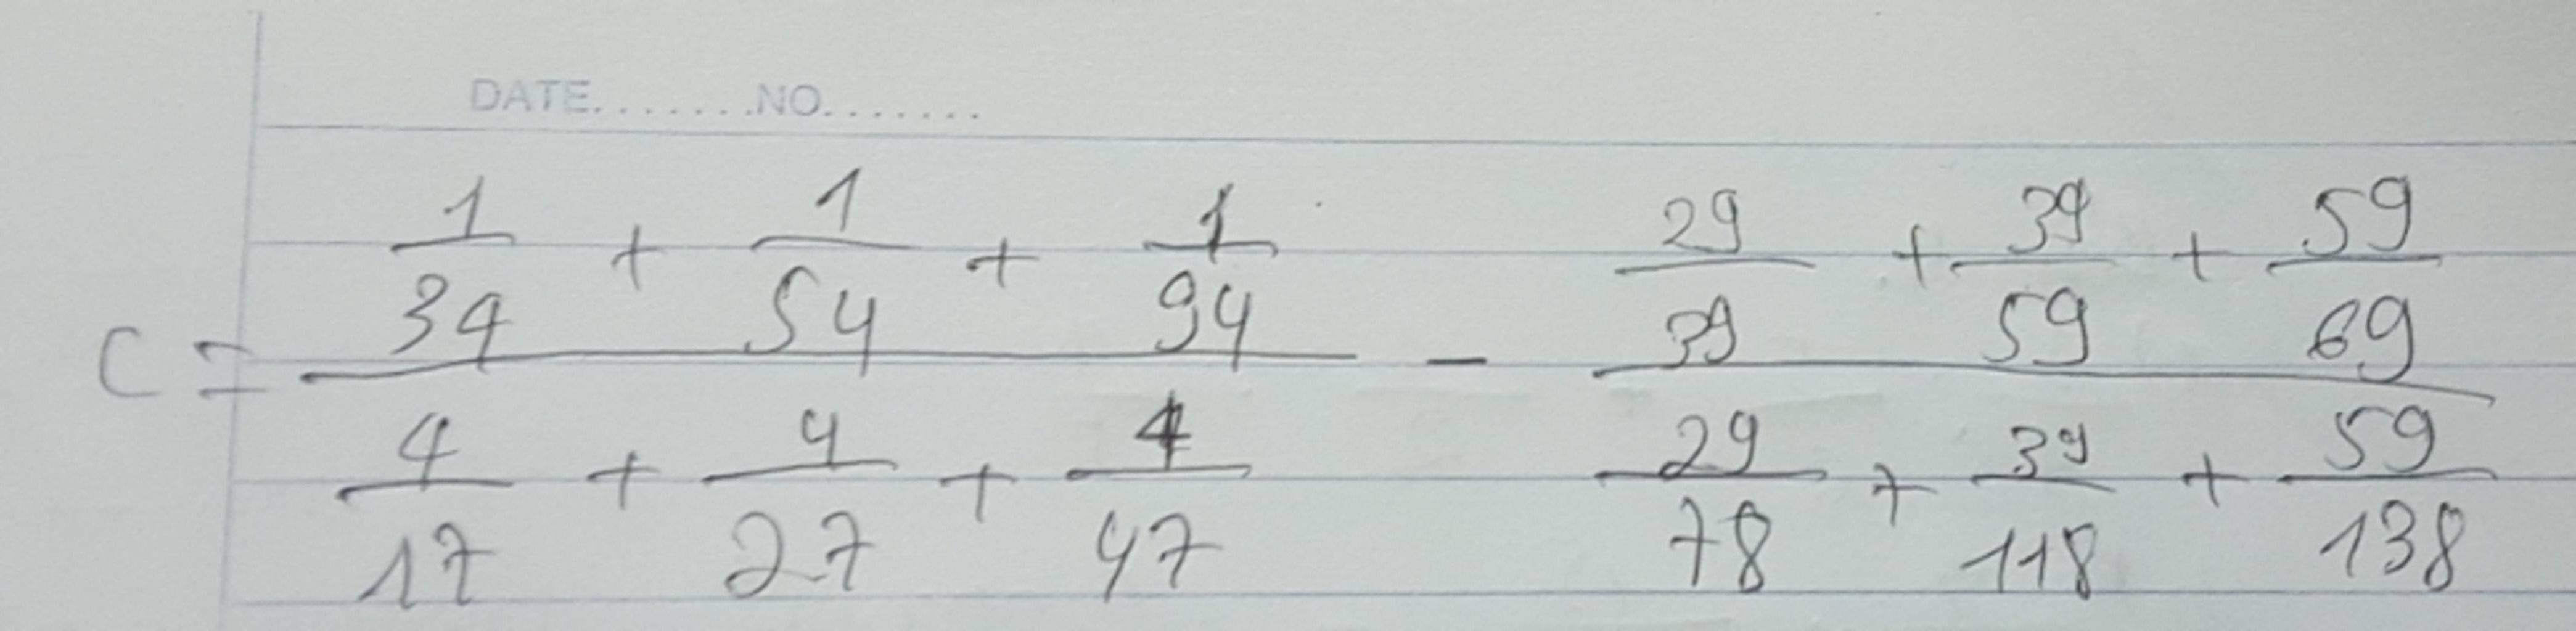 DATE.......NO.......
C = (1/34 + 1/54 + 1/94) / (4/17 + 4/27 + 4/47) - (29/39 + 39/59 + 59/69) / (29/78 + 39/118 + 59/138)